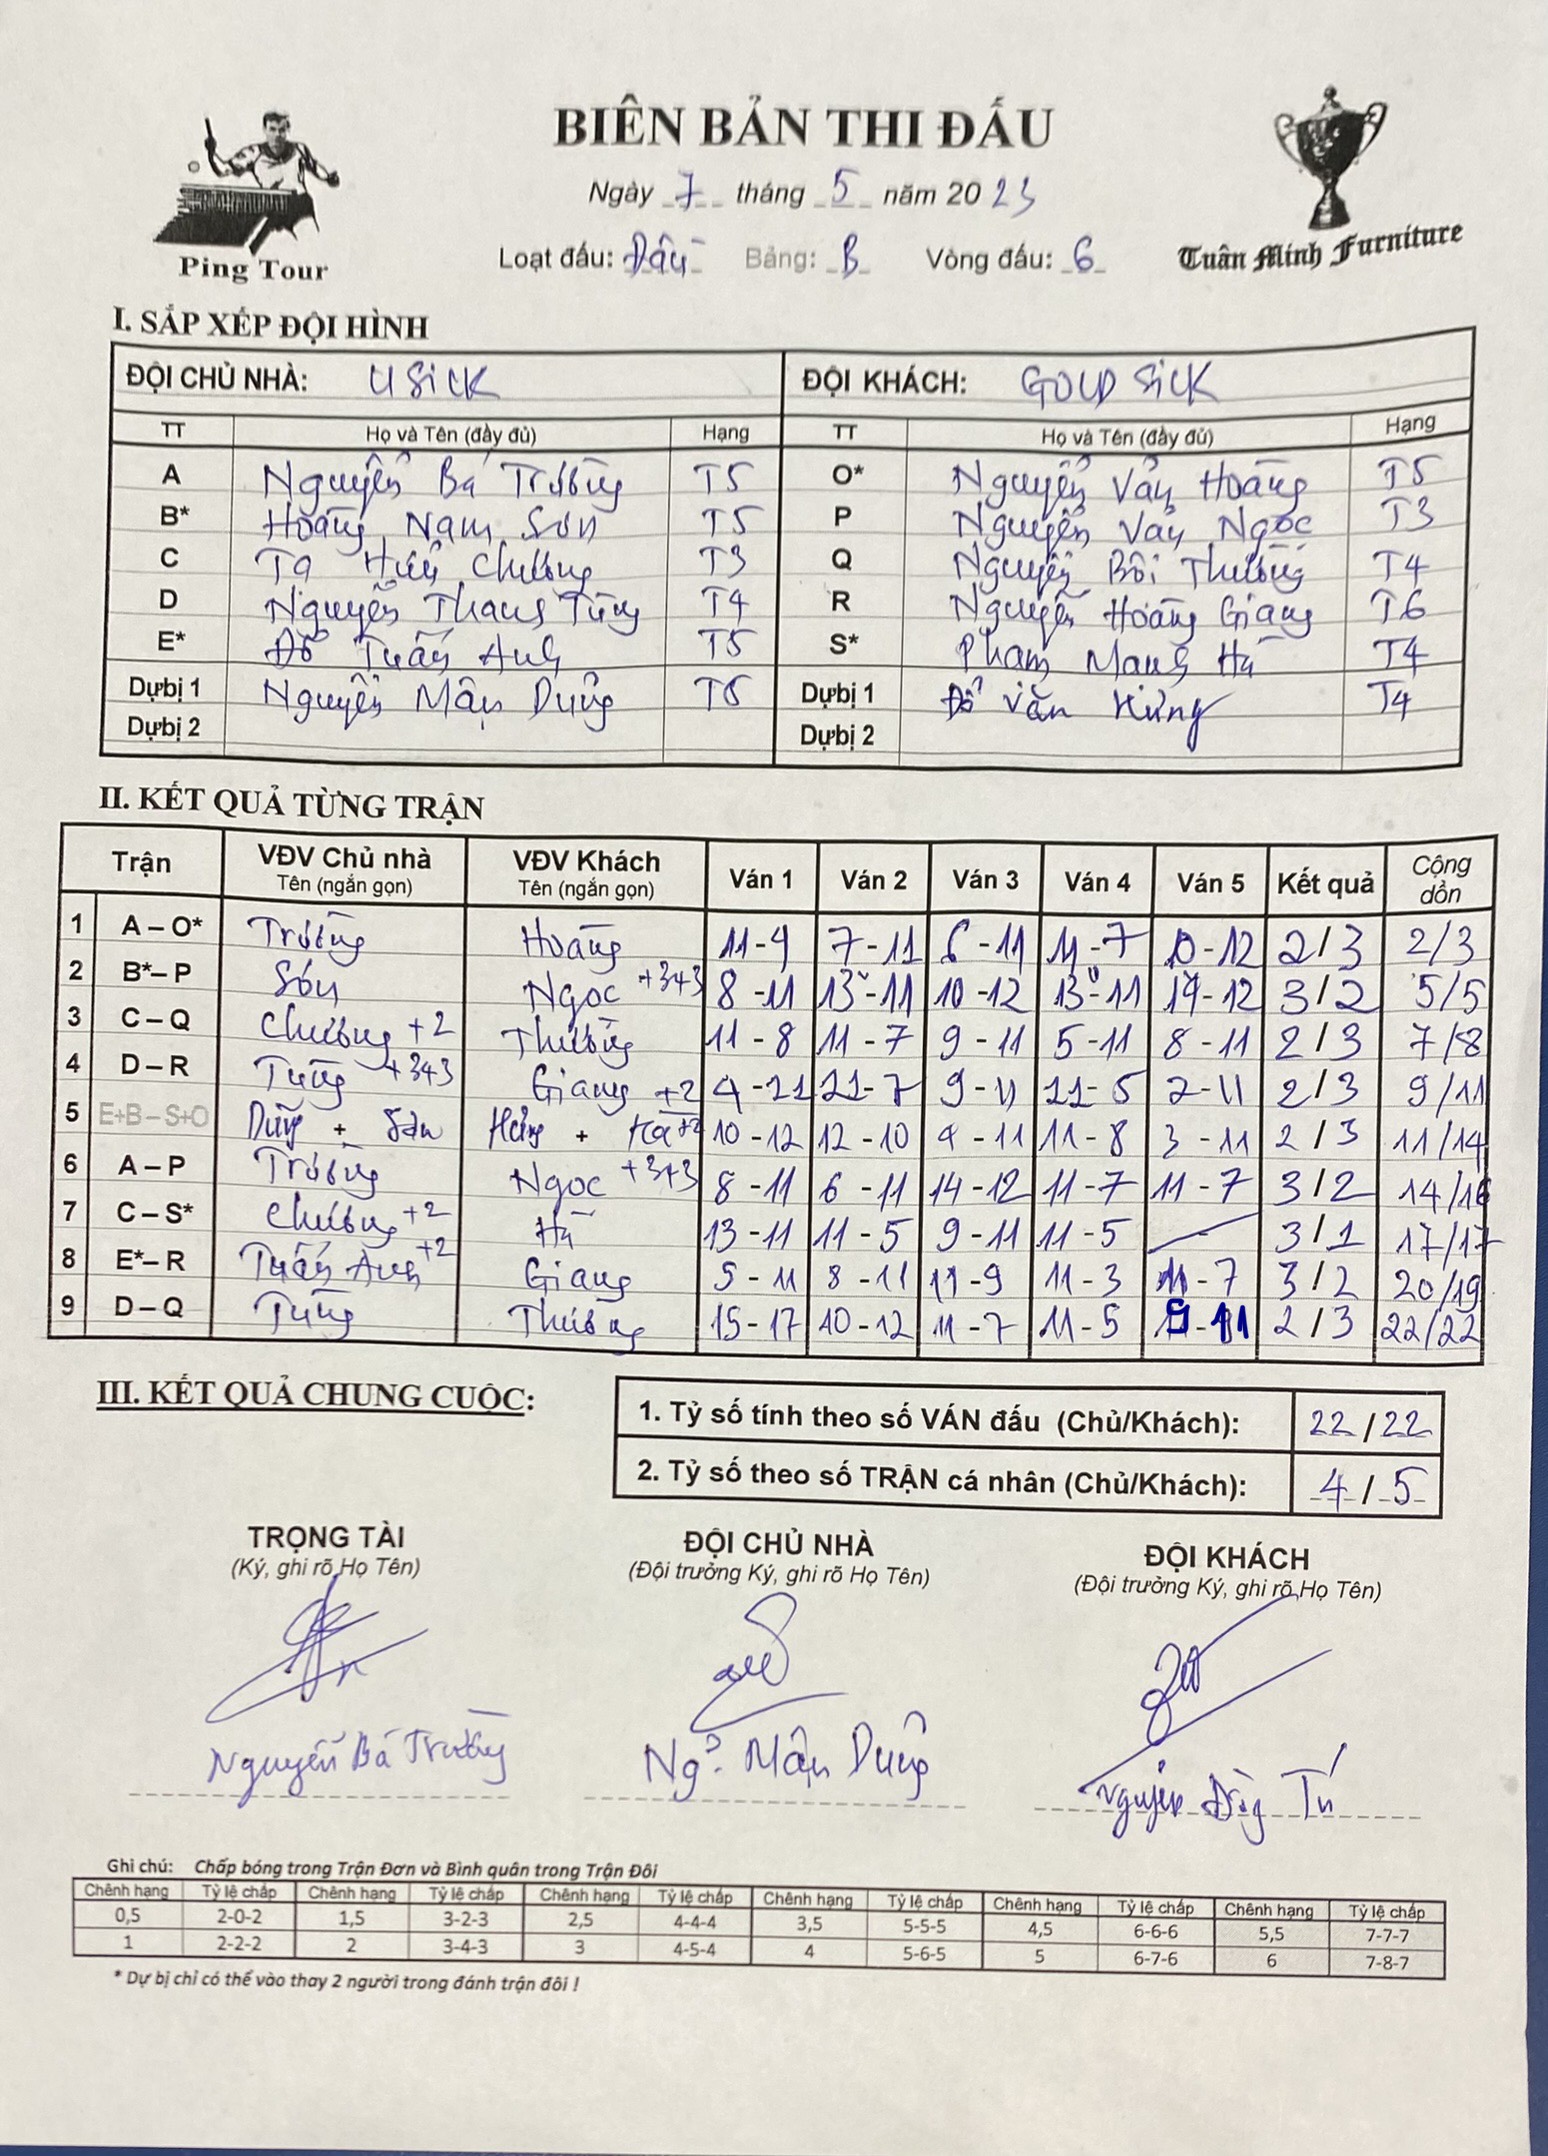 BIÊN BẢN THI ĐẤU
Ping Tour
Tuân Minh Furniture
Ngày 7 tháng 5 năm 2023
Loạt đấu: Đầu Bảng: B Vòng đấu: 6
I. SẮP XẾP ĐỘI HÌNH
ĐỘI CHỦ NHÀ: USICK ĐỘI KHÁCH: GOLD SICK
TT Họ và Tên (đầy đủ) Hạng TT Họ và Tên (đầy đủ) Hạng
A Nguyễn Bá Trường T5 O* Nguyễn Văn Hoàng T5
B* Hoàng Nam Sơn T5 P Nguyễn Văn Ngọc T3
C Tạ Huy Chương T3 Q Nguyễn Bồi Thường T4
D Nguyễn Thanh Tùng T4 R Nguyễn Hoàng Giang T6
E* Đỗ Tuấn Anh T5 S* Phạm Manh Hà T4
Dự bị 1 Nguyễn Mậu Dũng Dự bị 1 Đỗ Văn Hưng T4
Dự bị 2 Dự bị 2
II. KẾT QUẢ TỪNG TRẬN
Trận VĐV Chủ nhà Tên (ngắn gọn) VĐV Khách Tên (ngắn gọn) Ván 1 Ván 2 Ván 3 Ván 4 Ván 5 Kết quả Cộng dồn
1 A – O* Trường Hoàng 11-9 7-11 6-11 11-7 10-12 2/3 2/3
2 B* – P Sơn Ngọc +343 8-11 13-11 10-12 13-11 14-12 3/2 5/5
3 C – Q Chương +2 Thường 11-8 11-7 9-11 5-11 8-11 2/3 7/8
4 D – R Tùng +343 Giang +2 4-11 11-7 9-11 11-5 2-11 2/3 9/11
5 E+B – S+O Dũng + Sơn Hưng + Hà +2 10-12 12-10 4-11 11-8 3-11 2/3 11/14
6 A – P Trường Ngọc +343 8-11 6-11 14-12 11-7 11-7 3/2 14/16
7 C – S* Chương +2 Hà 13-11 11-5 9-11 11-5 3/1 17/17
8 E* – R Tuấn Anh +2 Giang 5-11 8-11 11-9 11-3 11-7 3/2 20/19
9 D – Q Tùng Thường 15-17 10-12 11-7 11-5 9-11 2/3 22/22
III. KẾT QUẢ CHUNG CUỘC:
1. Tỷ số tính theo số VÁN đấu (Chủ/Khách): 22/22
2. Tỷ số theo số TRẬN cá nhân (Chủ/Khách): 4/5
TRỌNG TÀI ĐỘI CHỦ NHÀ ĐỘI KHÁCH
(Ký, ghi rõ Họ Tên) (Đội trưởng Ký, ghi rõ Họ Tên) (Đội trưởng Ký, ghi rõ Họ Tên)
Nguyễn Bá Trường Ng~ Mậu Dũng Nguyễn Tú
Ghi chú: Chấp bóng trong Trận Đơn và Bình quân trong Trận Đôi
Chênh hạng Tỷ lệ chấp Chênh hạng Tỷ lệ chấp Chênh hạng Tỷ lệ chấp Chênh hạng Tỷ lệ chấp Chênh hạng Tỷ lệ chấp Chênh hạng Tỷ lệ chấp
0,5 2-0-2 1,5 3-2-3 2,5 4-4-4 3,5 5-5-5 4,5 6-6-6 5,5 7-7-7
1 2-2-2 2 3-4-3 3 4-5-4 4 5-6-5 5 6-7-6 6 7-8-7
* Dự bị chỉ có thể vào thay 2 người trong đánh trận đôi !